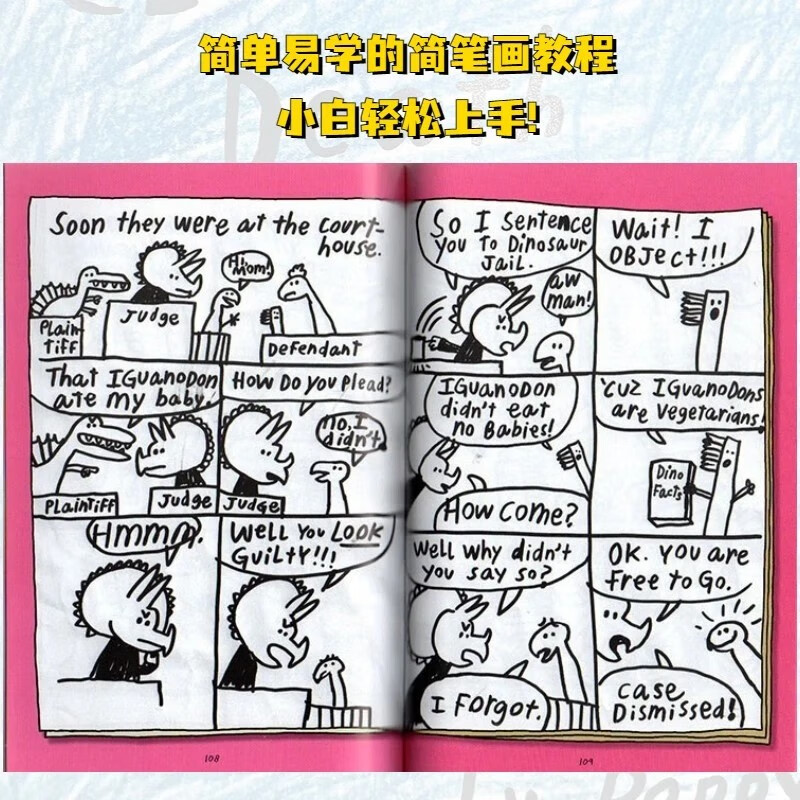 简单易学的简笔画教程
小白轻松上手!
Death
Soon they were at the court-
house.
Hi,
Mom!
Plain-
tiff
Judge
Defendant
That IGuanoDon
ate my baby.
Plaintiff
Judge
How Do you plead?
no, I
didn't
Judge
Hmmm.
Well you LOOK
GuilTY!!!
So I Sentence
you To Dinosaur
Jail.
aw
man!
Wait! I
OBJect!!!
IGuanoDon
didn't eat
no Babies!
How come?
'cuz IGuanoDons
are Vegetarians!
Dino
Facts
Well why didn't
you say so?
I Forgot.
OK. you are
free to Go.
case
Dismissed!
108
109